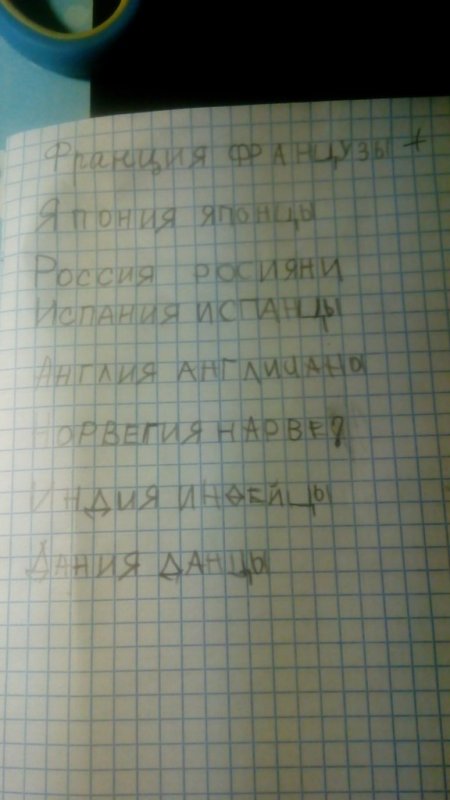 Франция ФРАНЦУЗЫ +
Япония японцы
Россия росияни
Испания испанцы
Англия англичано
Норвегия
Индия индейцы
Дания данцы